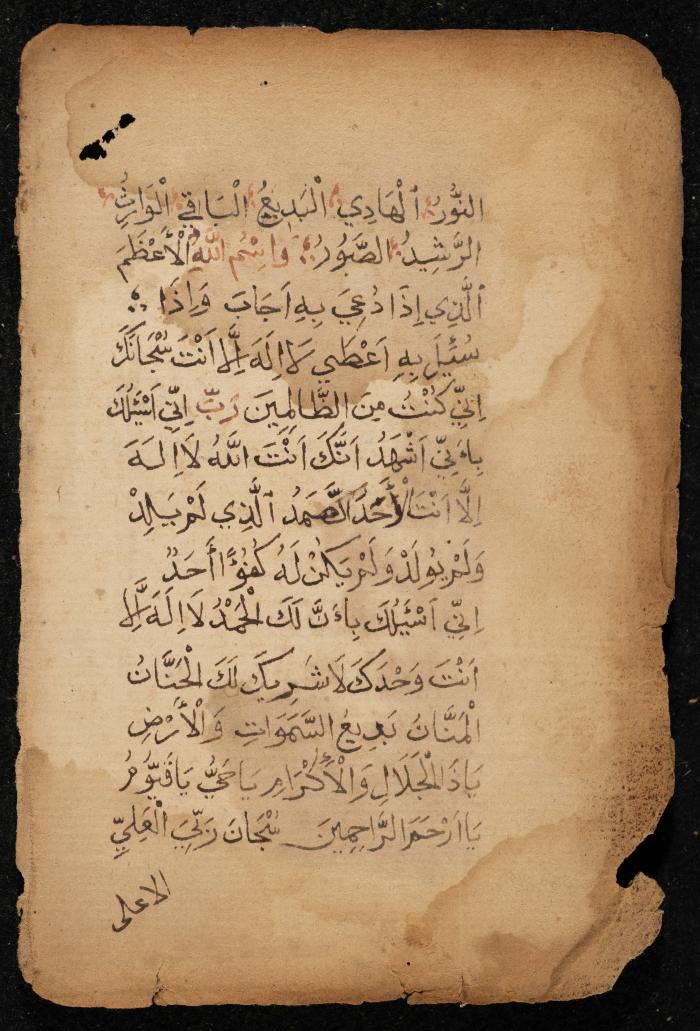 النُّورُ ٱلْهَادِي الْبَدِيعُ الْبَاقِي الْوَارِثُ
الرَّشِيدُ الصَّبُورُ وَاسْمُ اللّٰهِ الْأَعْظَمَ
ٱلَّذِي إِذَا دُعِيَ بِهِ اَجَابَ وَإِذَا
سُئِلَ بِهِ اَعْطَي لَا اِلَهَ اِلَّا اَنْتَ سُبْحَانَكَ
اِنِّي كُنْتُ مِنَ الظَّالِمِينَ رَبِّ اِنِّي اَسْئَلُكَ
بِاَءنِّي اَشْهَدُ اَنَّكَ اَنْتَ اللّٰهُ لَا اِلَهَ
اِلَّا اَنْتَ الْأَحَدُ الصَّمَدُ ٱلَّذِي لَمْ يَلِدْ
وَلَمْ يُولَدْ وَلَمْ يَكُنْ لَهُ كُفُوًا أَحَدٌ
اِنِّي اَسْئَلُكَ بِاَءنَّ لَكَ الْحَمْدُ لَا اِلَهَ اِلَّا
اَنْتَ وَحْدَكَ لَا شَرِيكَ لَكَ الْحَنَّانُ
الْمَنَّانُ بَدِيعُ السَّمَوَاتِ وَالْأَرْضِ
يَا ذَا الْجَلَالِ وَالْأِكْرَامِ يَا حَيُّ يَا قَيُّومُ
يَا اَرْحَمَ الرَّاحِمِينَ سُبْحَانَ رَبِّيَ الْعَلِيِّ
الاعلى